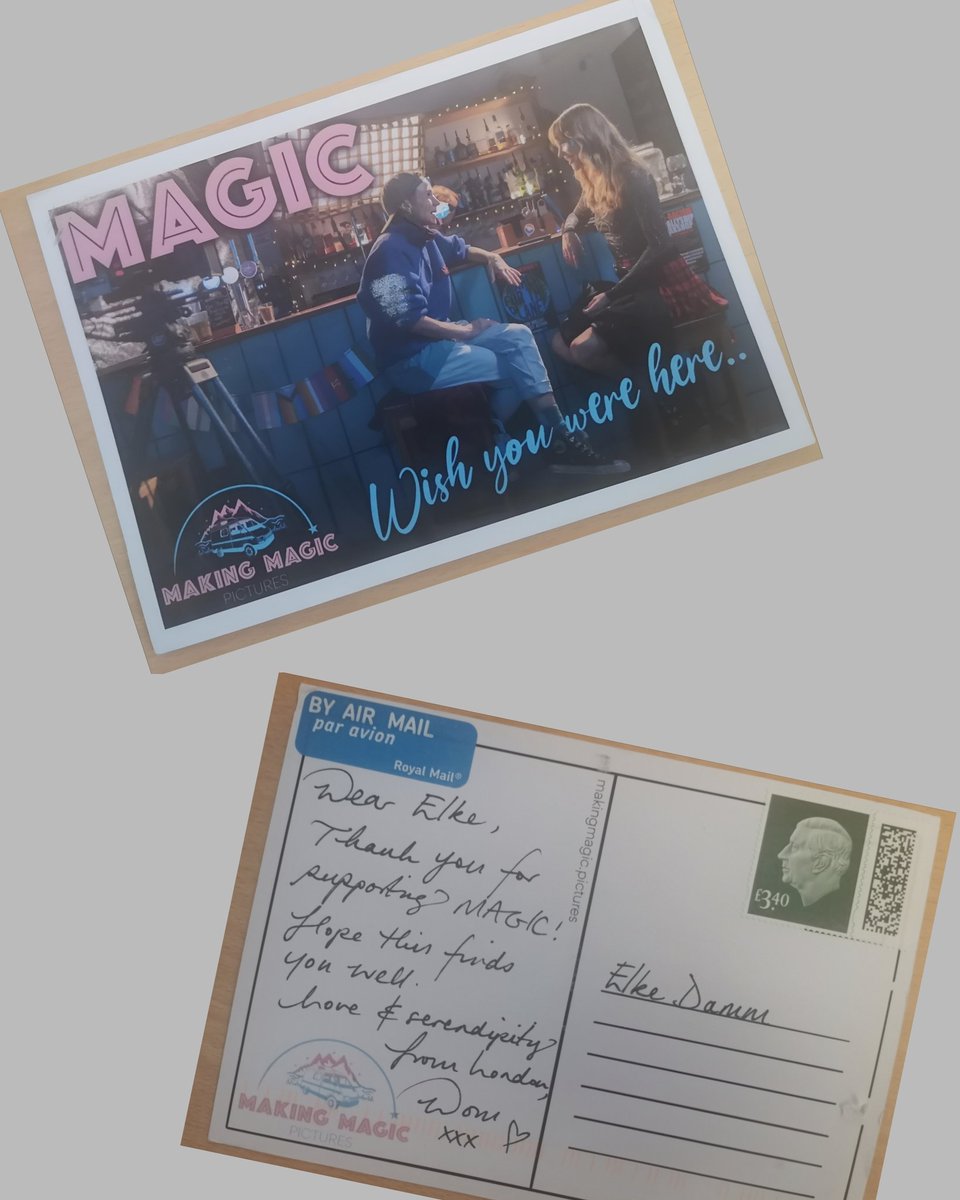 MAGIC
Wish you were here..
MAKING MAGIC
PICTURES
BY AIR MAIL
par avion
Royal Mail®
Dear Elke,
Thank you for
supporting MAGIC!
Hope this finds
you well.
Love & serendipity
from London,
Dom
xxx
MAKING MAGIC
PICTURES
makingmagic.pictures
£3.40
Elke Damm